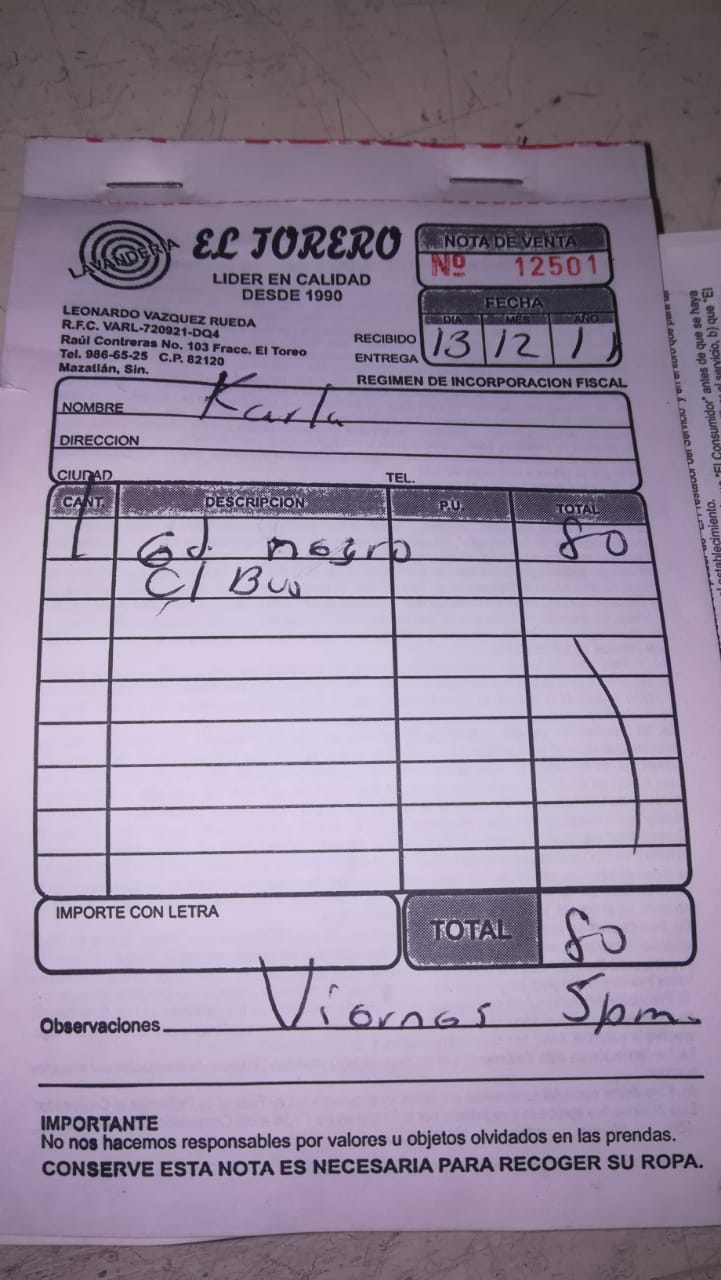 LAVANDERIA
EL TORERO
LIDER EN CALIDAD
DESDE 1990
LEONARDO VAZQUEZ RUEDA
R.F.C. VARL-720921-DQ4
Raúl Contreras No. 103 Fracc. El Toreo
Tel. 986-65-25 C.P. 82120
Mazatlán, Sin.
NOTA DE VENTA
Nº 12501
FECHA
DIA MES AÑO
RECIBIDO
ENTREGA
13 12 11
REGIMEN DE INCORPORACION FISCAL
NOMBRE Karla
DIRECCION
CIUDAD TEL.
CANT. DESCRIPCION P.U. TOTAL
1 Ed. negro 80
C/
IMPORTE CON LETRA
TOTAL 80
Observaciones Viernes 5pm.
IMPORTANTE
No nos hacemos responsables por valores u objetos olvidados en las prendas.
CONSERVE ESTA NOTA ES NECESARIA PARA RECOGER SU ROPA.
"El Consumidor" antes de que se haya
el servicio, b) que "El
establecimiento.